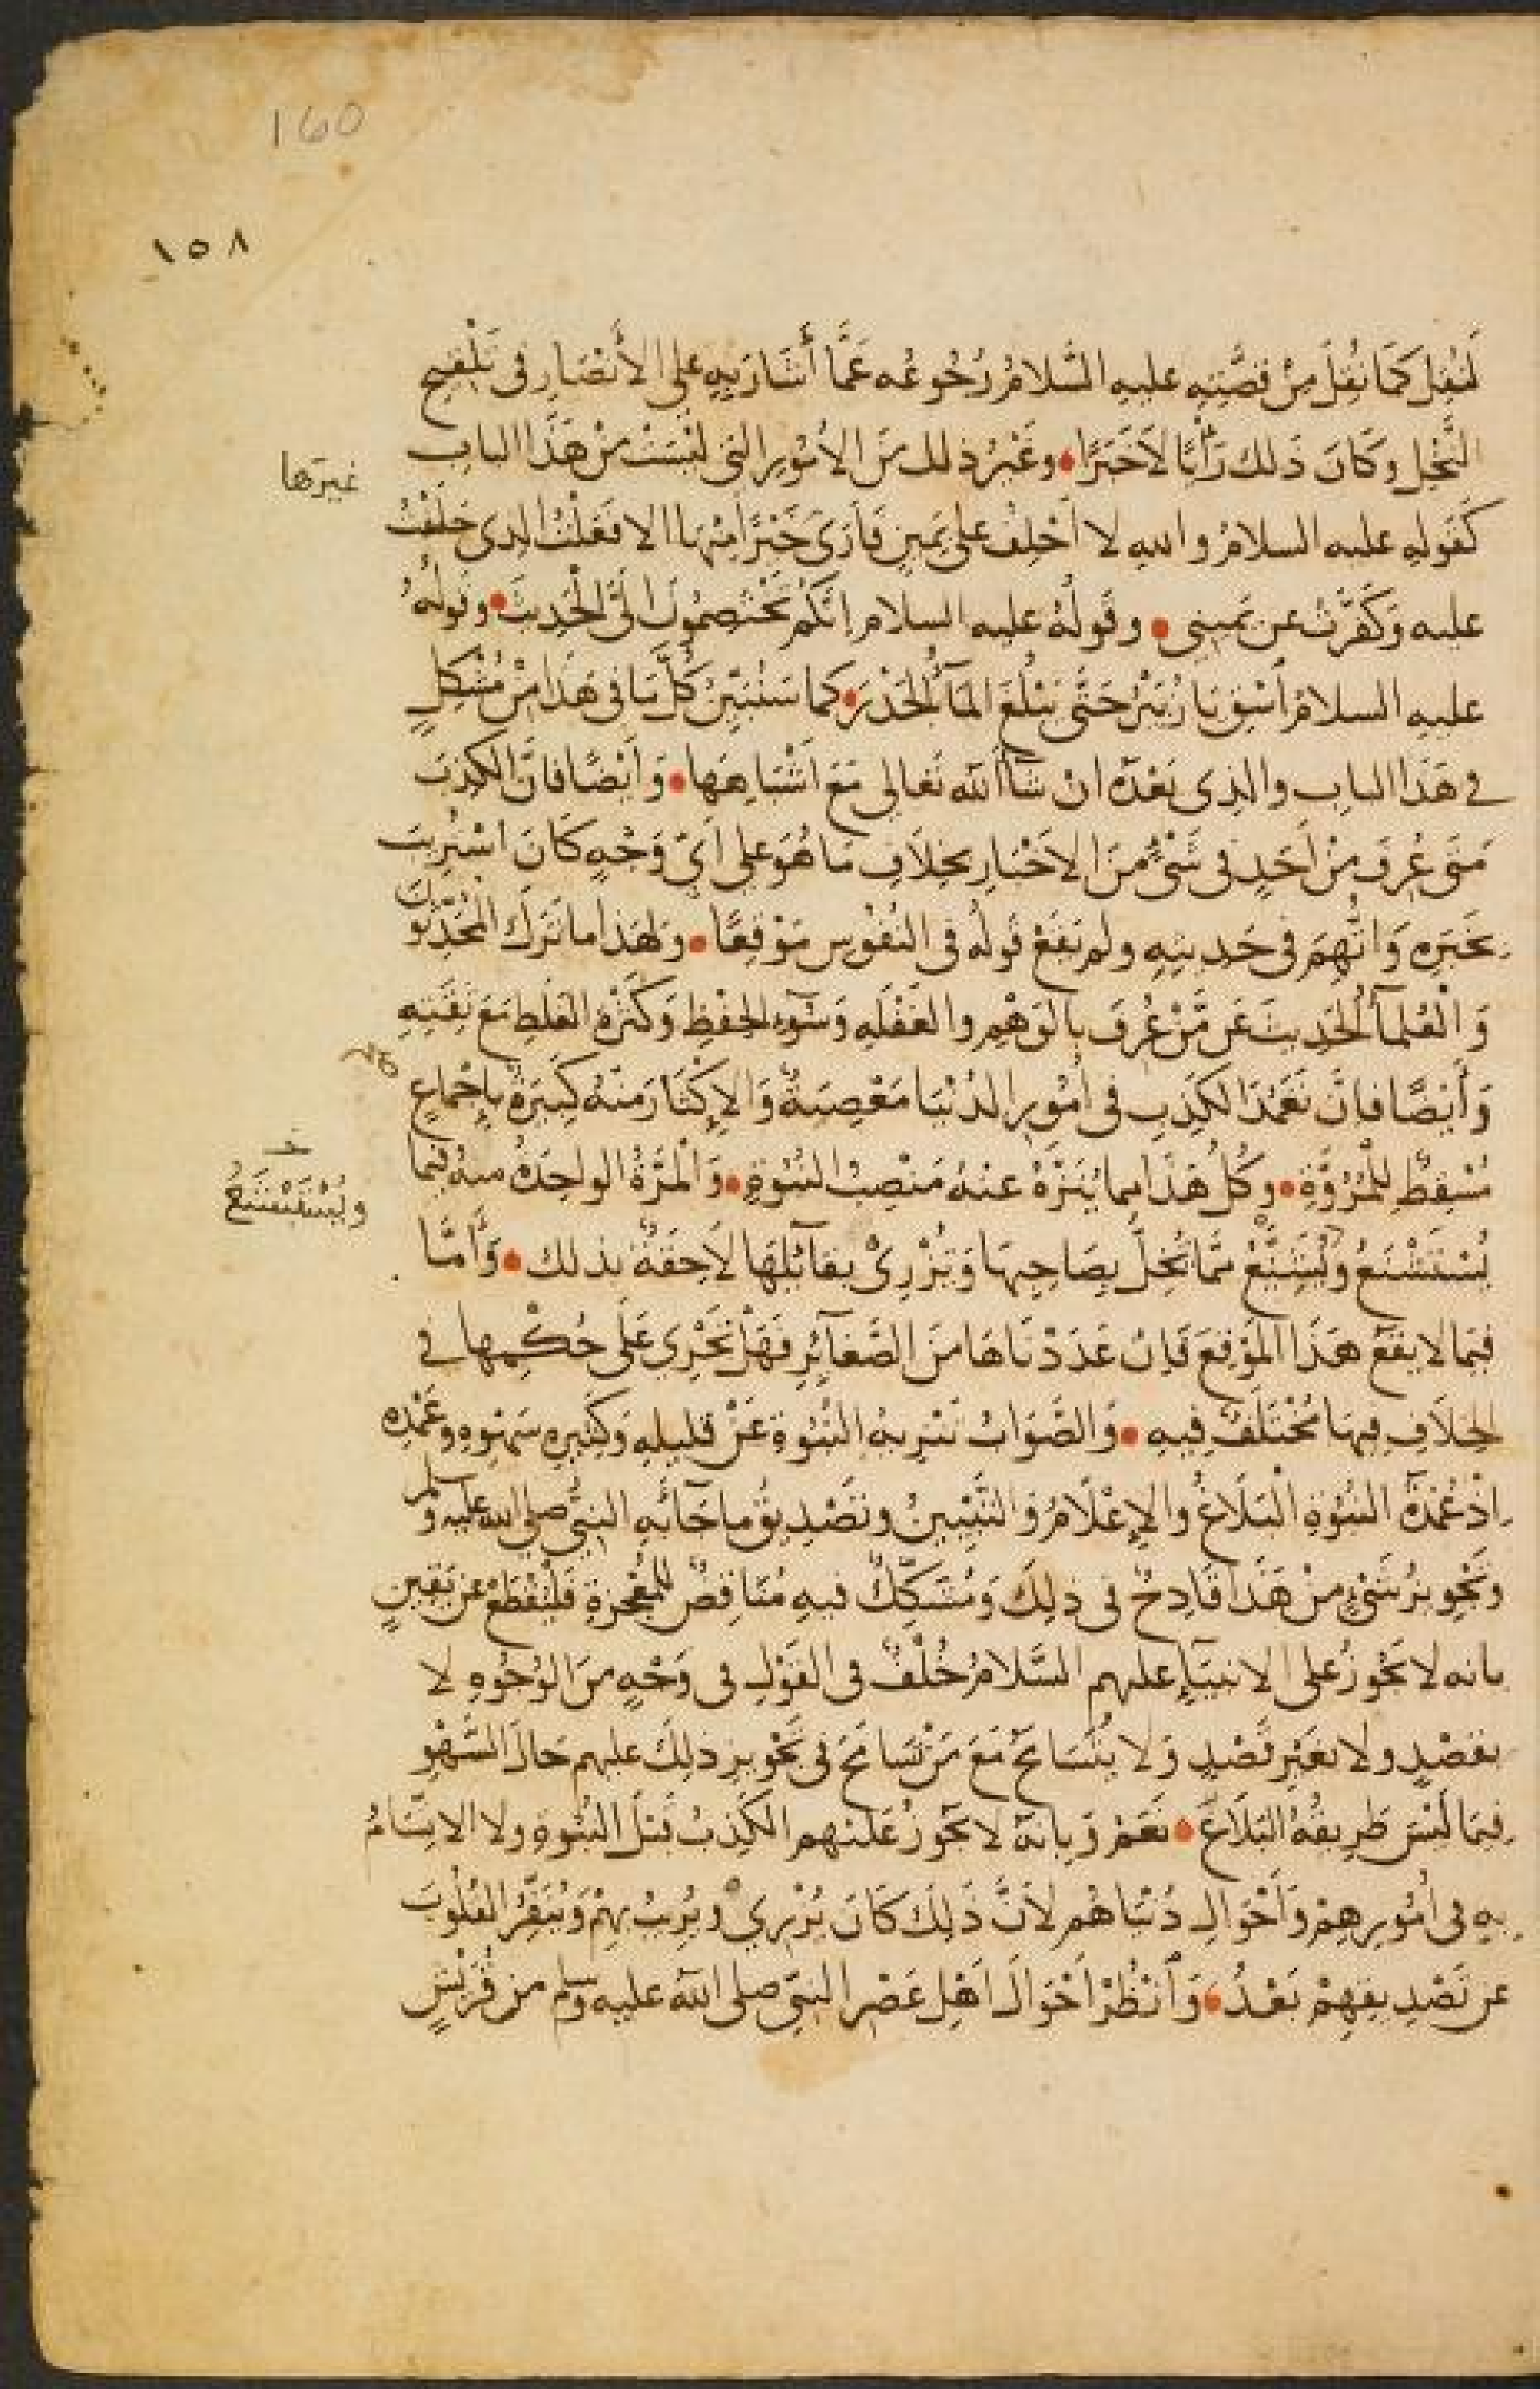 160
١٥٨
لَنُقِلَ كَمَا نُقِلَ مِنْ قِصَّتِهِ عليهِ السَّلامُ رُجُوعُه عَمَّا أَشَارَ بِهِ على الأَنْصَارِ فى تَلْقيح
النَّخْلِ وكَانَ ذَلك رَأْيًا لَا خَبَرًا • وغَيْرُ ذلك مِنَ الأُمُورِ التى لَيْسَتْ مِنْ هَذَا الباب
غيرَها
كَقَولِهِ عليه السلامُ واللهِ لا أَحْلِفُ على يَمينٍ فَأَرَى خَيْرًا مِنْهَا الا فَعَلْتُ الذى حَلَفْتُ
عليه وَكَفَّرْتُ عن يَمينى • وقولُهُ عليه السلام اِنَّكُمْ تَخْتَصِمُونَ اِلَىَّ الْحَدِيثَ • وقولُهُ
عليهِ السلامُ أَسْقِ يَا زُبَيْرُ حَتَّى يَبْلُغَ المَآءُ الْجَدْرَ • كما سَنُبَيِّنُ كُلَّ مَا فى هَذَا مِنْ مُشْكِلٍ
فى هَذَا الباب والذى بَعْدَهُ انْ شَآءَ اللّه تَعَالى مَعَ أَشْبَاهِهَا • وَأَيْضًا فَانَّ الكذِبَ
مَتَى عُرِفَ مِنْ أَحَدٍ فى شَىْءٍ مِنَ الاَخْبَارِ بخِلَافِ مَا هُوَ على أىِّ وَجْهٍ كَانَ اسْتُرِيبَ
بخَبَرِهِ وَاتُّهِمَ فى حَديثِهِ ولم يَقَعْ قَولُهُ فى النُّفُوسِ مَوْقِعًا • وَلهَذا ما تَرَكَ المُحَدِّثُونَ
وَالْعُلَمآءُ الحَدِيثَ عَن مَّنْ عُرِفَ بِالوَهْمِ والغَفْلَهِ وَسُوءِ الحِفْظِ وَكَثْرَةِ الغَلَطِ مَعَ ثِقَتِهِ
وَأَيْضًا فَاِنَّ تَعَمُّدَ الكَذِبِ فى أُمُورِ الدُّنْيَا مَعْصِيَةٌ وَالإِكْثَارَ مِنْهُ كَبِيرَةٌ بِإجْمَاعٍ
مُسْقِطٌ لِلْمُرُوَّةِ • وكُلُّ هَذَا مِما يُنَزَّهُ عنهُ مَنْصِبُ النُّبُوةِ • وَالْمَرَّةُ الواحِدَةُ منهُ فيما
ويُسْتَبْشَعُ
يُسْتَشْنَعُ وَيُشَيَّعُ مِمَّا تُخِلُّ بِصَاحِبِهَا وَتُزْرِىْ بقائلِهَا لَاحِقَةٌ بذلك • وَأَمَّا
فيمَا لا يَقَعُ هَذَا الْمَوْقِعَ فَاِنْ عَدَدْنَاهَا مِنَ الصَّغآئِرِ فَهَلْ تَجْرِي عَلَى حُكْمِهَا فى
الخِلَافِ فِيهَا مُخْتَلَفٌ فِيهِ • وَالصَّوَابُ تَنْزِيهُ النُّبُوةِ عَنْ قَلِيلِهِ وَكَثيرِهِ سَهْوِهِ وعَمْدِهِ
اِذْ عُمْدَةُ النُّبُوَّةِ الْبَلَاغُ والإِعْلَامُ وَالتَّبْيينُ وتَصْدِيقُ ما جَآءَ بِهِ النَّبِىُّ صلى الله عليه وسلم
وتَجْوِيزُ شَىْءٍ مِنْ هَذَا قَادِحٌ فى ذلِكَ وَمُشَكِّكٌ فيهِ مُنَاقِضٌ لِلْمُعْجِزَةِ فَلْيُقْطَعْ عن يَقينٍ
بانه لا يَجُوزُ على الانبيَآءِ عليهم السَّلامُ خُلْفٌ فى القَوْلِ فى وَجْهٍ مِنَ الوُجُوهِ لا
بقَصْدٍ ولا بغَيْرِ قَصْدٍ وَلا يُتَسَامَحُ مَعَ مَنْ تَسَامَحَ فى تَجْويزِ ذلِكَ عليهم حَالَ السَّهْوِ
فيمَا لَيْسَ طَرِيقُهُ البَلَاغَ • نَعَمْ وَبِانَهُ لَا يَجُوزُ عَلَيْهِم الكَذِبُ قَبْلَ النُّبُوةِ ولا الاتِّسَامُ
بِهِ فى أُمُورِهِمْ وَأَحْوَالِ دُنْيَاهُم لأَنَّ ذَلِكَ كَانَ يُزْرِي ويُرِيبُ بِهِمْ وَيُنَفِّرُ القُلُوبَ
عن تَصْدِيقِهِمْ بَعْدُ • وَانْظُرْ أَحْوَالَ اَهْلِ عَصْرِ النبىِّ صلى اللّه عليه وسلم من قُرَيْشٍ